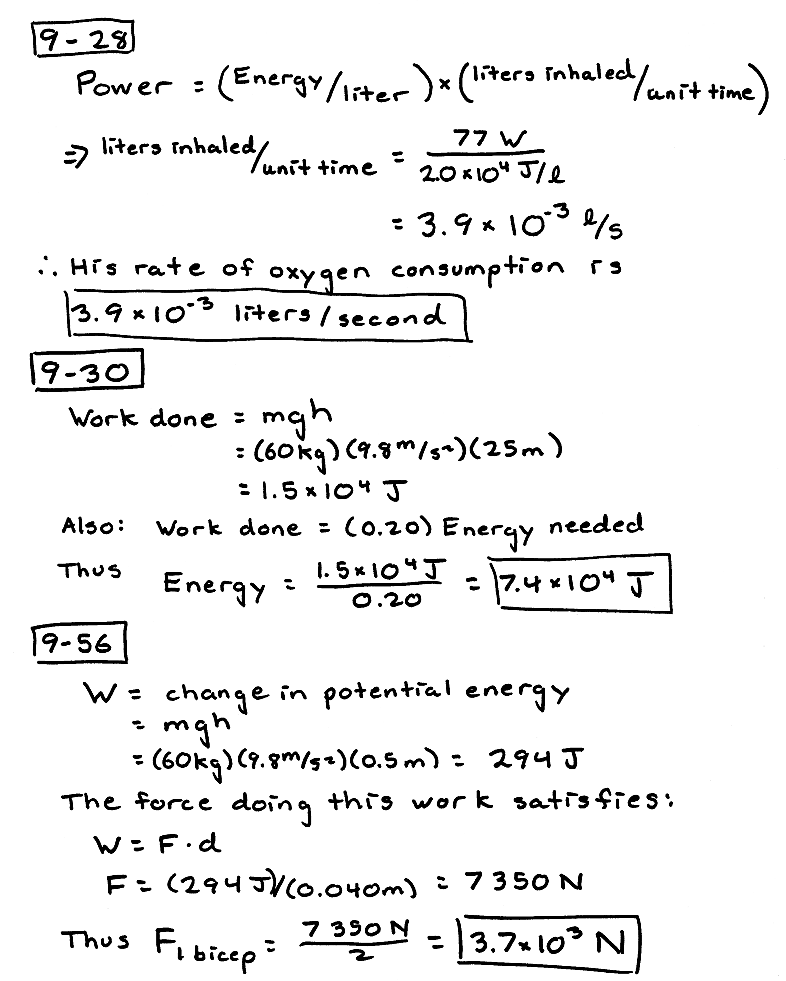 9-28
Power = (Energy/liter) × (liters inhaled/unit time)
⇒ liters inhaled/unit time = 77 W / 2.0×10⁴ J/ℓ
= 3.9 × 10⁻³ ℓ/s
∴ His rate of oxygen consumption is
3.9 × 10⁻³ liters/second
9-30
Work done = mgh
= (60kg)(9.8m/s²)(25m)
= 1.5×10⁴ J
Also: Work done = (0.20) Energy needed
Thus Energy = 1.5×10⁴ J / 0.20 = 7.4×10⁴ J
9-56
W = change in potential energy
= mgh
= (60kg)(9.8m/s²)(0.5m) = 294 J
The force doing this work satisfies:
W = F·d
F = (294 J)/(0.040m) = 7350 N
Thus F₁ bicep = 7350 N / 2 = 3.7×10³ N